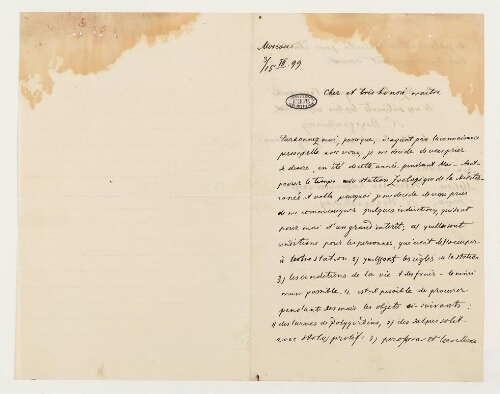 Moscou
3/15 III 99
Cher et très honoré maître
Pardonnez moi, parce que, n'ayant pas la connaissance
personnelle avec vous, je me décide de vous prier
Je désire, en été de cette année, pendant Mai - Août
passer le temps à la station Zoologique de la Méditer
ranée et voilà pourquoi je me décide de vous prier
de me communiquer quelques indications, qui sont
pour moi d'un grand interêt: 1) quelles sont
conditions pour les personnes, qui vont s'occuper
à la station 2) quelles sont les règles à la station
3) les conditions de la vie et des frais - le mini
mum possible. 4. est-il possible de procurer
pendant ces mois les objets ci-suivants:
1) des larves de Polygordius, 2) des salpes solit-
aires 3)